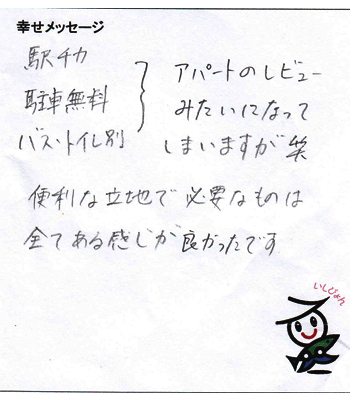 幸せメッセージ
駅チカ
駐車無料
バス・トイレ別
アパートのレビュー
みたいになって
しまいますが笑
便利な立地で必要なものは
全てある感じが良かったです
いしぴょん